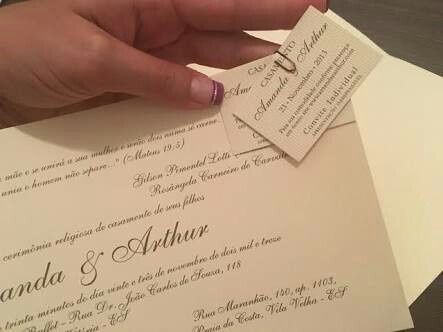 CASAMENTO
Amanda & Arthur
23 • Novembro • 2013
Convite Individual
CASA
Am
mãe e se unirá a sua mulher e serão dois numa só carne
uniu o homem não separe..." (Mateus 19.5)
Gilson Pimentel Lotti
Rosângela Carneiro de Carvalh
cerimônia religiosa de casamento de seus filhos
anda & Arthur
trinta minutos do dia vinte e três de novembro de dois mil e treze
Buffet - Rua Dr. João Carlos de Souza, 118
- ES
Rua Maranhão, 140, ap. 1103,
da Costa, Vila Velha - ES